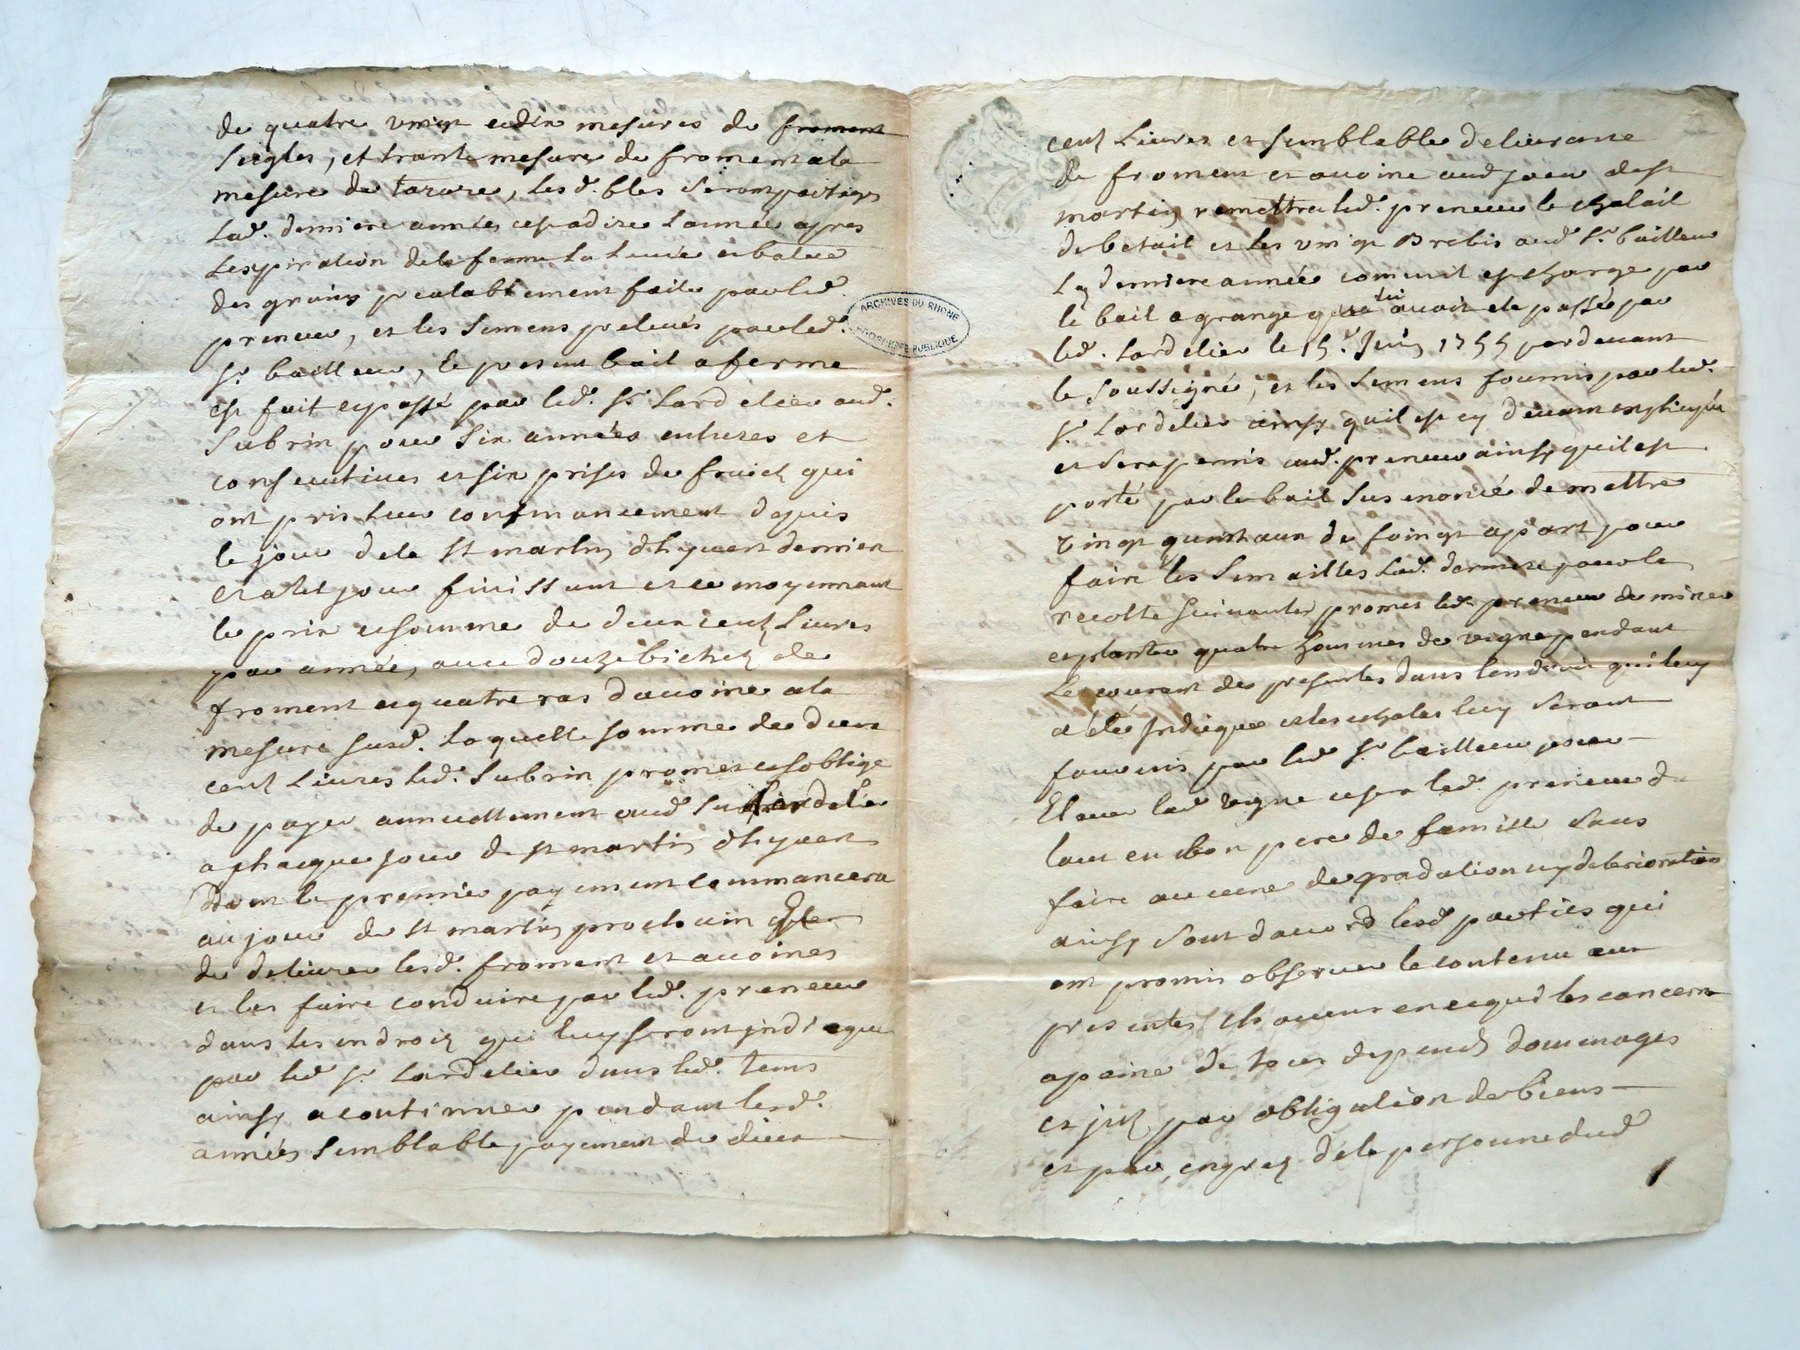 de quatre vingt et dix mesures de froment
seigles, et trante mesure de froment a la
mesure de tarare, les d. bles seront partages
lad. derniere année cest a dire l'année apres
lexpiration de la ferme la levée et batue
des grains prealablement faite par led.
preneur, et les semens prelevés par led.
sr. bailleur, le present bail a ferme
est fait et passé par led. sr. Lardelier aud.
Subrin pour six années entieres et
consecutives et six prises de fruict qui
ont pris leur commancement depuis
le jour de la st martin d'hyvert dernier
et a tel jour finissant et ce moyennant
le prix et somme de deux cent livres
par année, avec douze bichet de
froment et quatre ras davoine a la
mesure susd. laquelle somme de deux
cent livres led. Subrin promet et soblige
de payer annuellement aud. Sr Lardelier
a chacque jour de st martin d'hyvert
dont le premier payement commancera
au jour de st martin prochain
de delivrer lesd. froment et avoines
et les faire conduire par led. preneur
dans les endroit qui luy seront indique
par led sr Lardelier dans led. tems
ainsy a continuer pendant lesd.
années semblable payement de deux
cent livres et semblable delivrance
de froment et avoine aud jour de st
martin, remettra led. preneur le chatail
de betail et les vingt Brebis aud sr. bailleur
la derniere année comme il est charge par
le bail a grange qui lui avoit ete passé par
led. Lardelier le 15e. Juin 1755 pardevant
le soussigné, et les semens fournis par led.
sr. Lardelier ainsy quil est cy devant expliqué
et sera permis aud. preneur ainsy quil est
porté par le bail sus enoncé de mettre
vingt quintaux de foingt apart pour
faire les semailles lad. derniere pour la
recolte suivante, promet led. preneur de miner
et planter quatre hommes de vigne pendant
le courant des presentes dans lendroit qui luy
a été indiqué et les echalas luy seront
fournis par led sr. bailleur pour
Elever lad vigne et sera led. preneur du
tout en bon pere de famille sans
faire aucune degradation ny deterioration
ainsy sont daccord lesd parties qui
ont promis observer le contenu aux
presentes chacun en ce qui les concerne
a peine de tous depends dommages
et jnt. par obligation de biens
et par, exprez de la personne dud